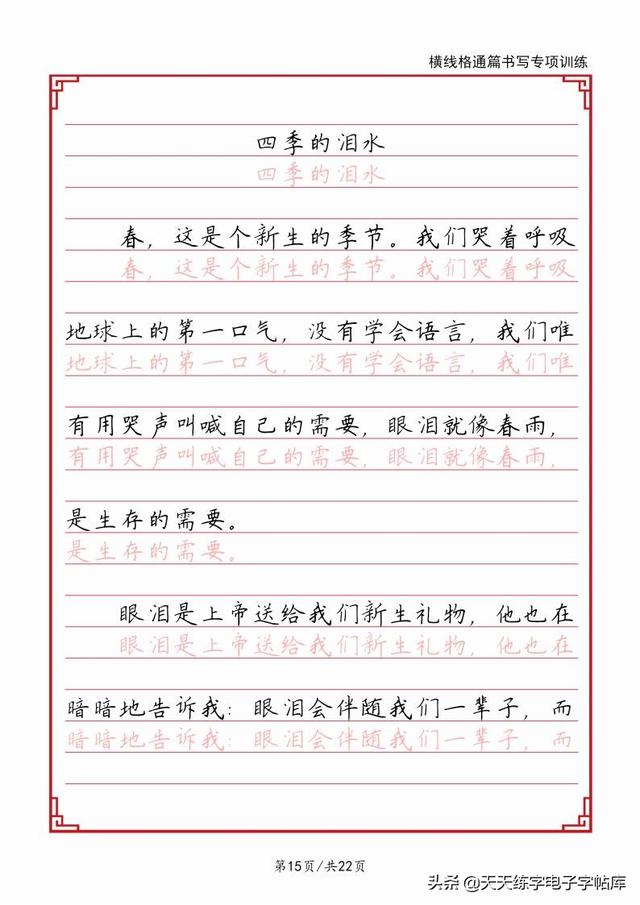 横线格通篇书写专项训练
四季的泪水
四季的泪水
春，这是个新生的季节。我们哭着呼吸
春，这是个新生的季节。我们哭着呼吸
地球上的第一口气，没有学会语言，我们唯
地球上的第一口气，没有学会语言，我们唯
有用哭声叫喊自己的需要，眼泪就像春雨，
有用哭声叫喊自己的需要，眼泪就像春雨，
是生存的需要。
是生存的需要。
眼泪是上帝送给我们新生礼物，他也在
眼泪是上帝送给我们新生礼物，他也在
暗暗地告诉我：眼泪会伴随我们一辈子，而
暗暗地告诉我：眼泪会伴随我们一辈子，而
第15页/共22页
头条 @天天练字电子字帖库